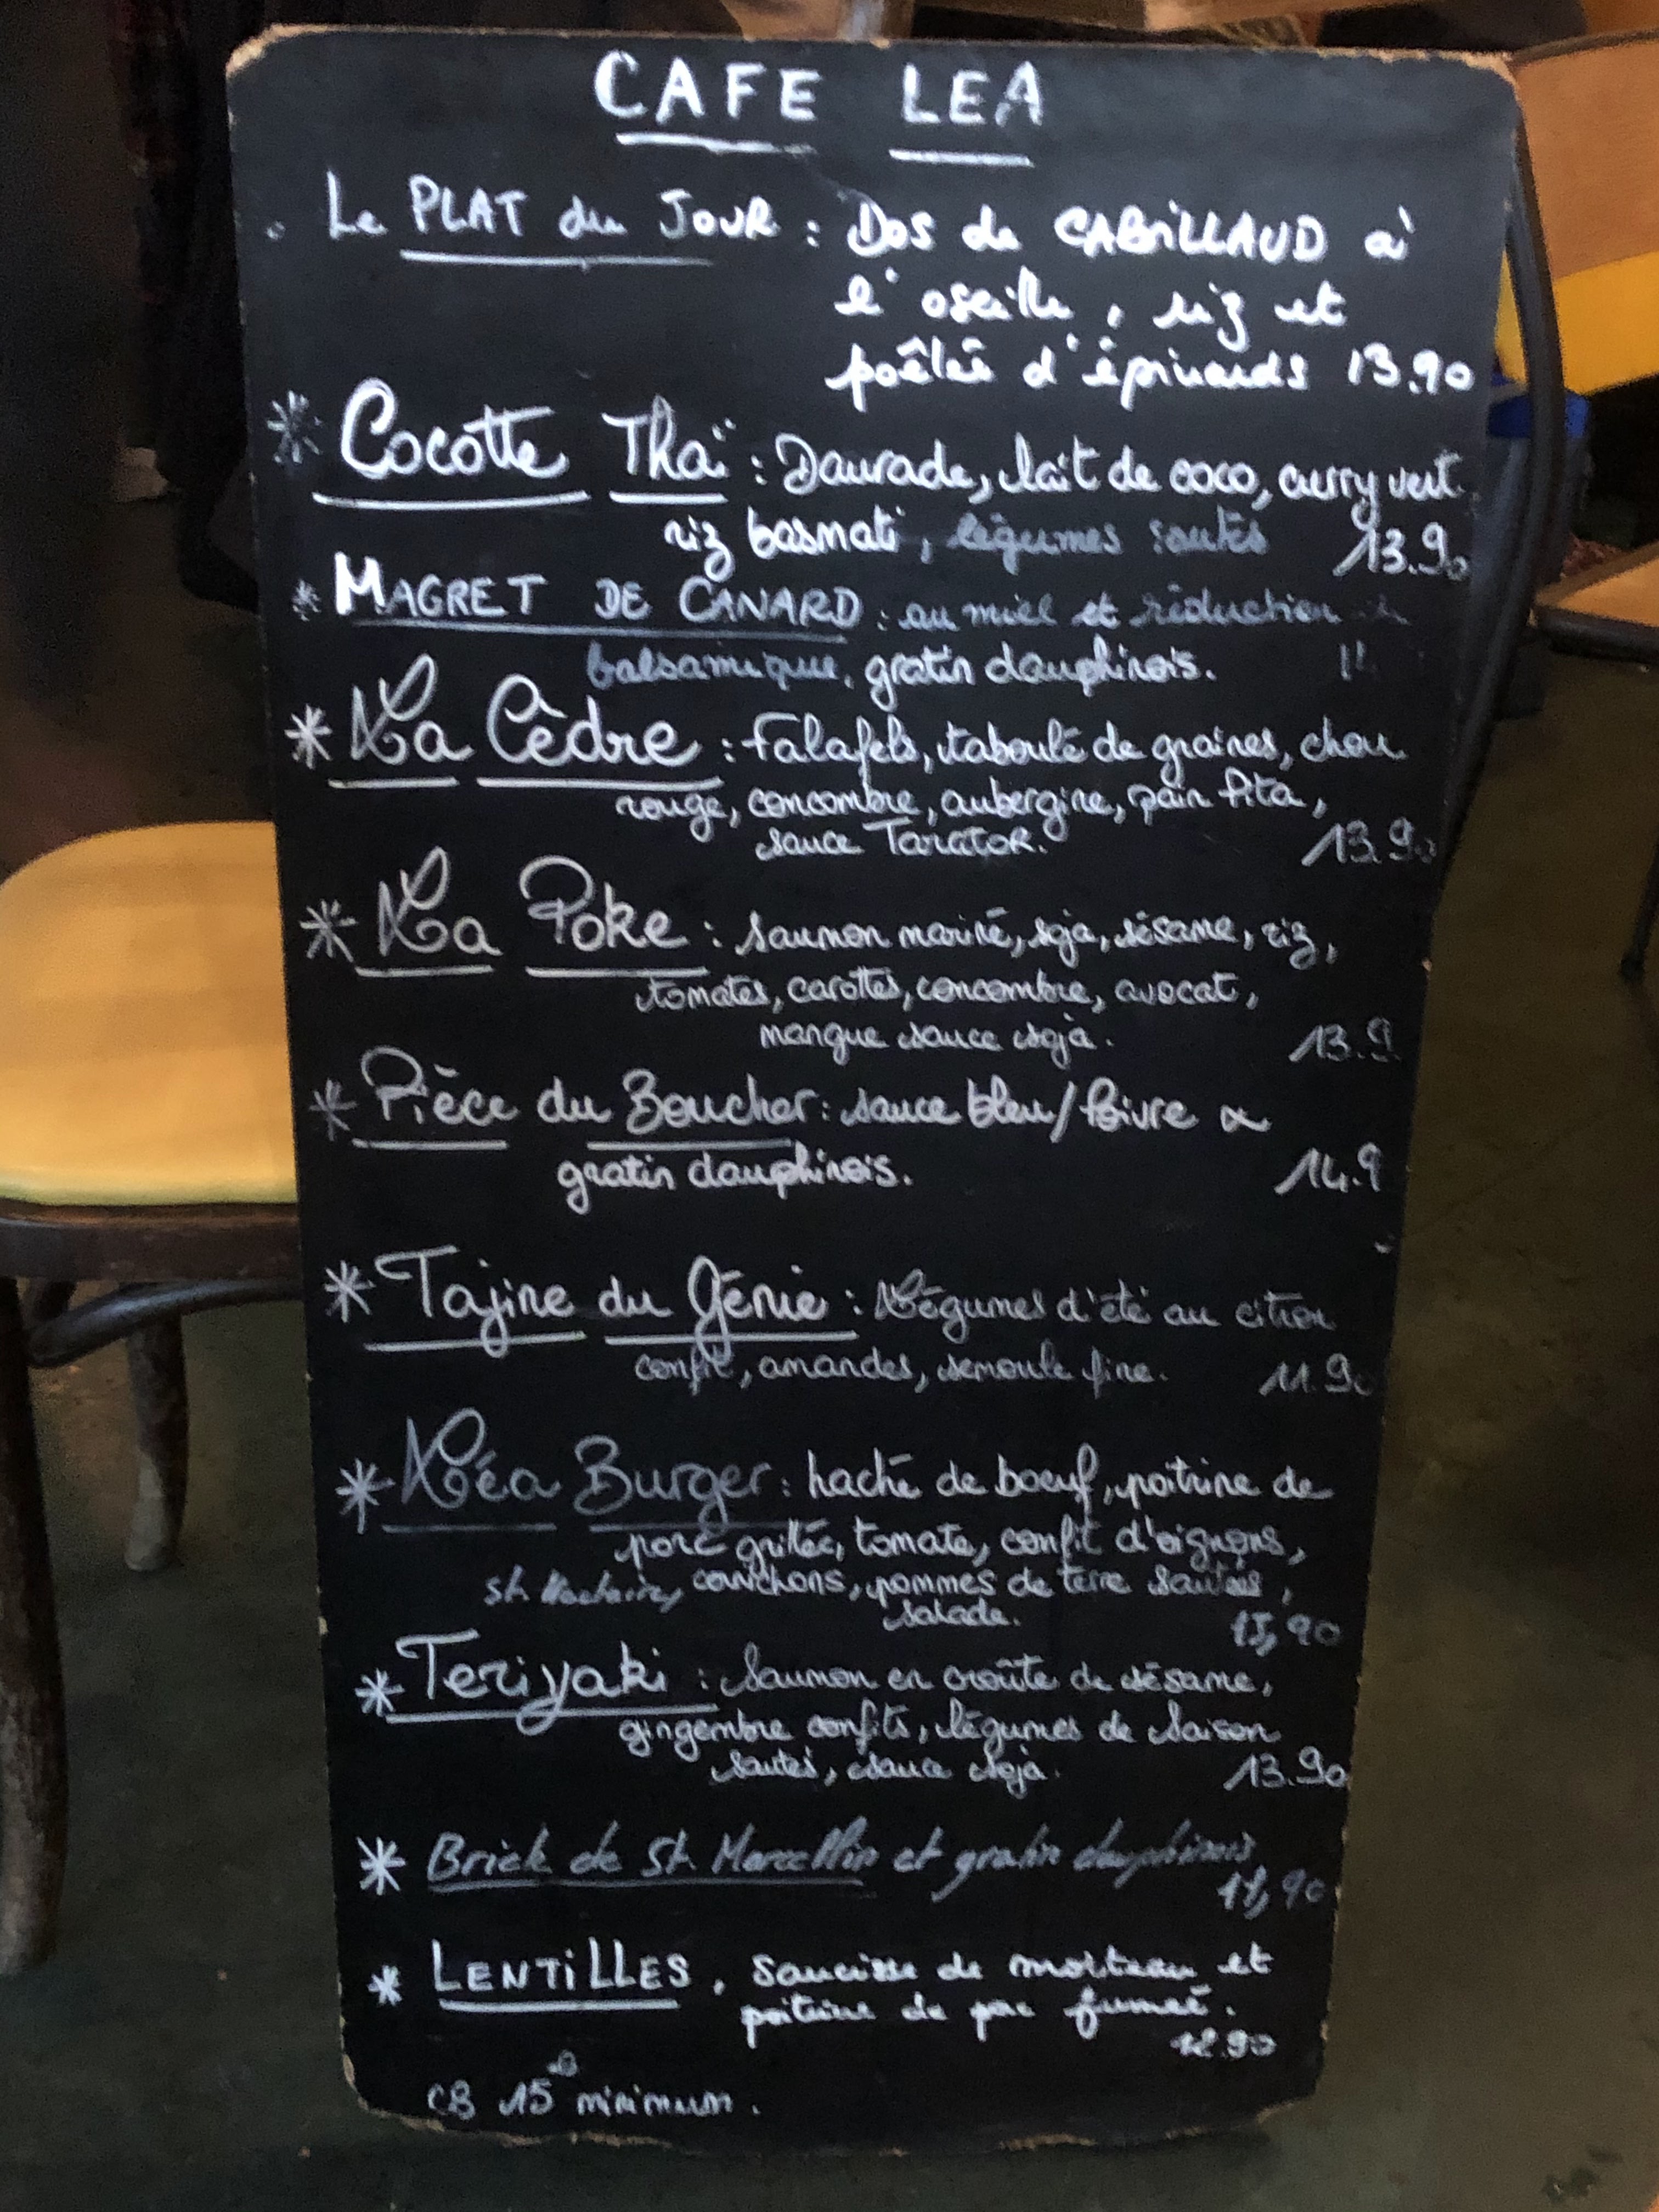 CAFE LEA
. Le PLAT du JOUR : Dos de CABILLAUD à
l'oseille, riz et
poêlée d'épinards 13.90
* Cocotte Thaï : Daurade, lait de coco, curry vert
riz basmati, légumes sautés 13.90
* MAGRET DE CANARD : au miel et réduction
balsamique, gratin dauphinois.
* La Cèdre : Falafels, taboulé de graines, chou
rouge, concombre, aubergine, pain Pita,
sauce Tarator. 13.90
* La Poke : Saumon mariné, soja, sésame, riz,
tomates, carottes, concombre, avocat,
mangue sauce soja. 13.9
* Pièce du Boucher : sauce bleu/Poivre &
gratin dauphinois. 14.9
* Tajine du Génie : Légumes d'été au citron
confit, amandes, semoule fine. 11.90
* Léa Burger : haché de boeuf, poitrine de
porc grillée, tomate, confit d'oignons,
St. Nectaire, cornichons, pommes de terre sautées,
salade. 15,90
* Teriyaki : Saumon en croûte de sésame,
gingembre confits, légumes de saison
sautés, sauce soja. 13.90
* Brick de St. Marcellin et gratin dauphinois
11,90
* LENTILLES, saucisse de morteau et
poitrine de porc fumée.
12.90
CB 15 minimum.